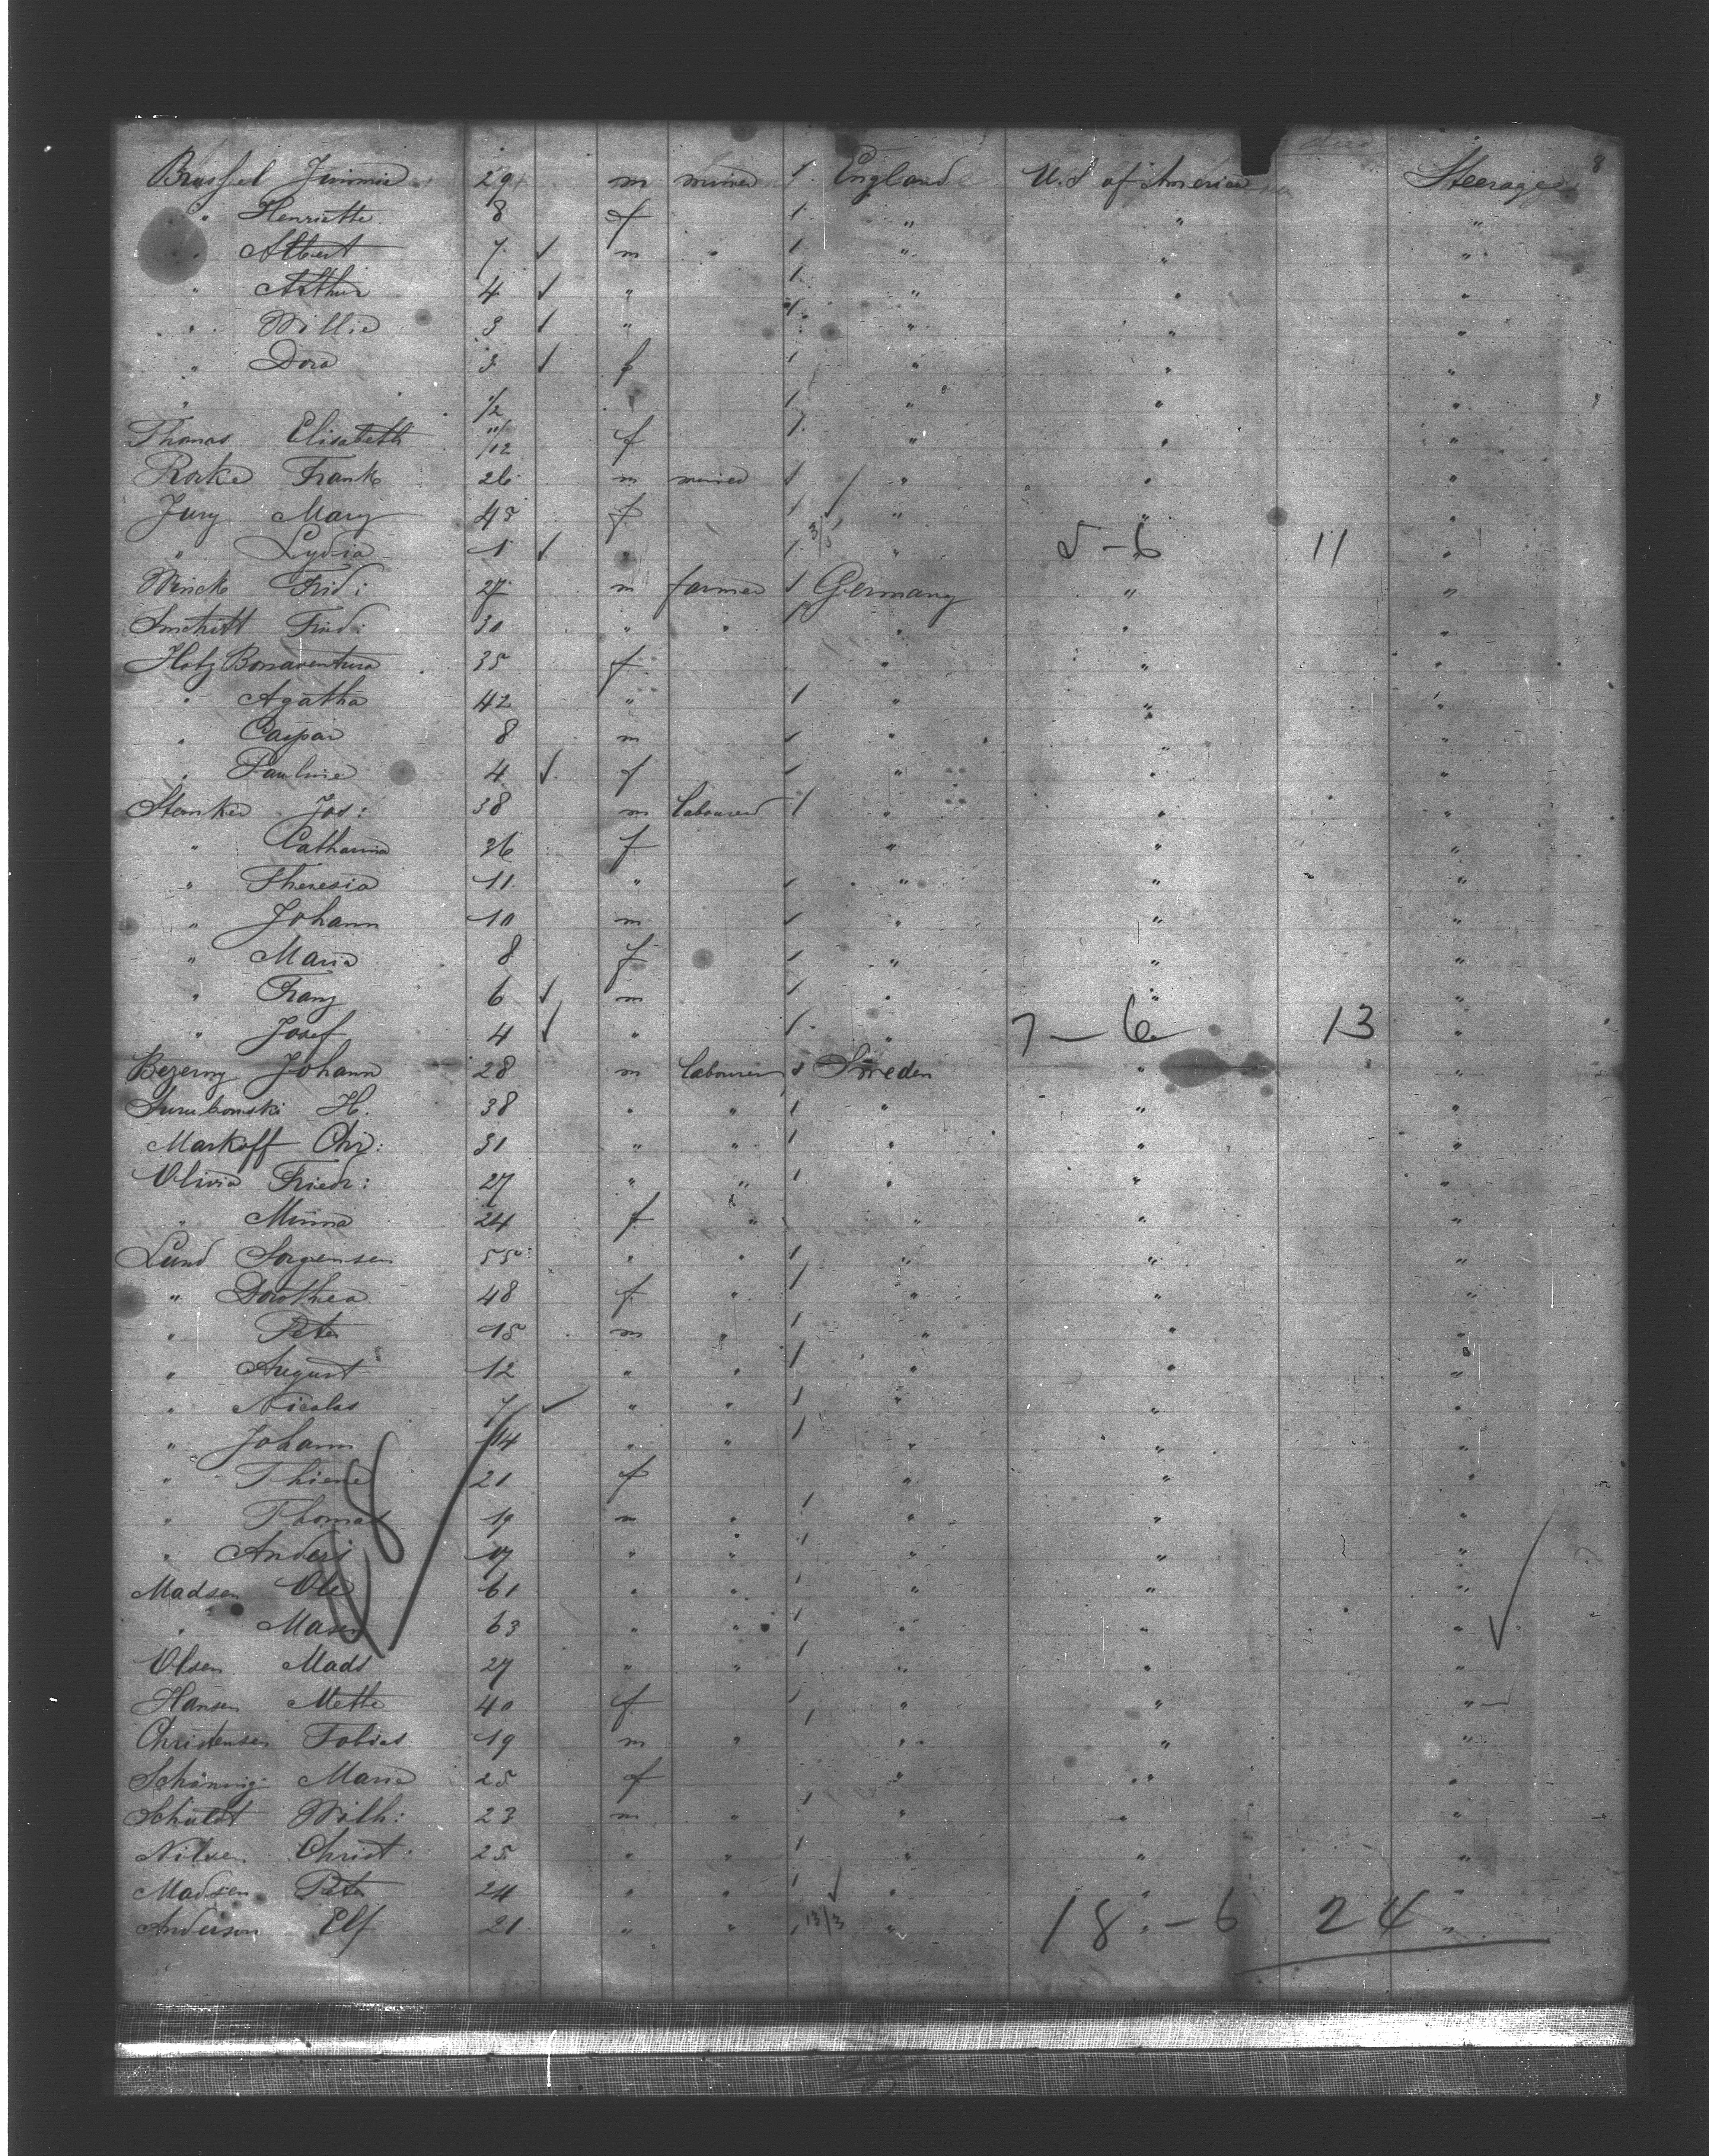 Jimmie 29 m miner 1 England U.S of America Steerage 8
" Henriette 8 f 1 " " "
" Albert 7 ✓ m " 1 " " "
" Arthur 4 ✓ " 1 " " "
" Willie 3 ✓ " 1 " " "
" Dora 3 ✓ f 1 " " "
" 1/2 1 " " "
Thomas Elisabeth 11/12 f 1 " " "
Rorke Frank 26 m miner 1 " " "
Jury Mary 45 f 1 " " "
" Lydia 1 ✓ " 1 3/5 " 5-6 11 "
Frid: 27 m farmer 1 Germany " "
Fried: 30 " " 1 " " "
Hotz Bonaventura 35 f " " "
" Agatha 42 " 1 " " "
" Caspar 8 m 1 " " "
" Pauline 4 ✓ f 1 " " "
Jos: 38 m labourer 1 " " "
" Catharina 36 f " " "
" Theresia 11 " 1 " " "
" Johann 10 m 1 " " "
" Maria 8 f 1 " " "
" Franz 6 ✓ m 1 " " "
" Josef 4 ✓ " 1 " 7-6 13 "
Johann 28 m labourer 1 Sweden " "
H. 38 " " 1 " " "
Markoff Chr: 31 " " 1 " " "
Olivia Friedr: 27 " " 1 " " "
" Minna 24 f " " " "
Lund Sorgensen 55 " " 1 " " "
" Dorothea 48 f " 1 " " "
" Peter 15 m " 1 " " "
" August 12 " " 1 " " "
" Nicolas 7 ✓ " " 1 " " "
" Johann 14 " " 1 " " "
" 21 f " " "
" Thomas 19 m " 1 " " "
" Anders 17 " " 1 " " "
Madsen Ole 61 " " 1 " " "
" 63 " " 1 " " "
Olsen Mads 27 " " 1 " " "
Hansen Mette 40 f 1 " " "
Christensen Tobias 19 m " 1 " " "
Schönnig Maria 25 f " " "
Schuldt Wilh: 23 m " 1 " " "
Nilsen Christ. 25 " " 1 " " "
Madsen Peter 24 " " 1 " " "
Anderson Elf 21 " " 1 13/3 " 18-6 24 "